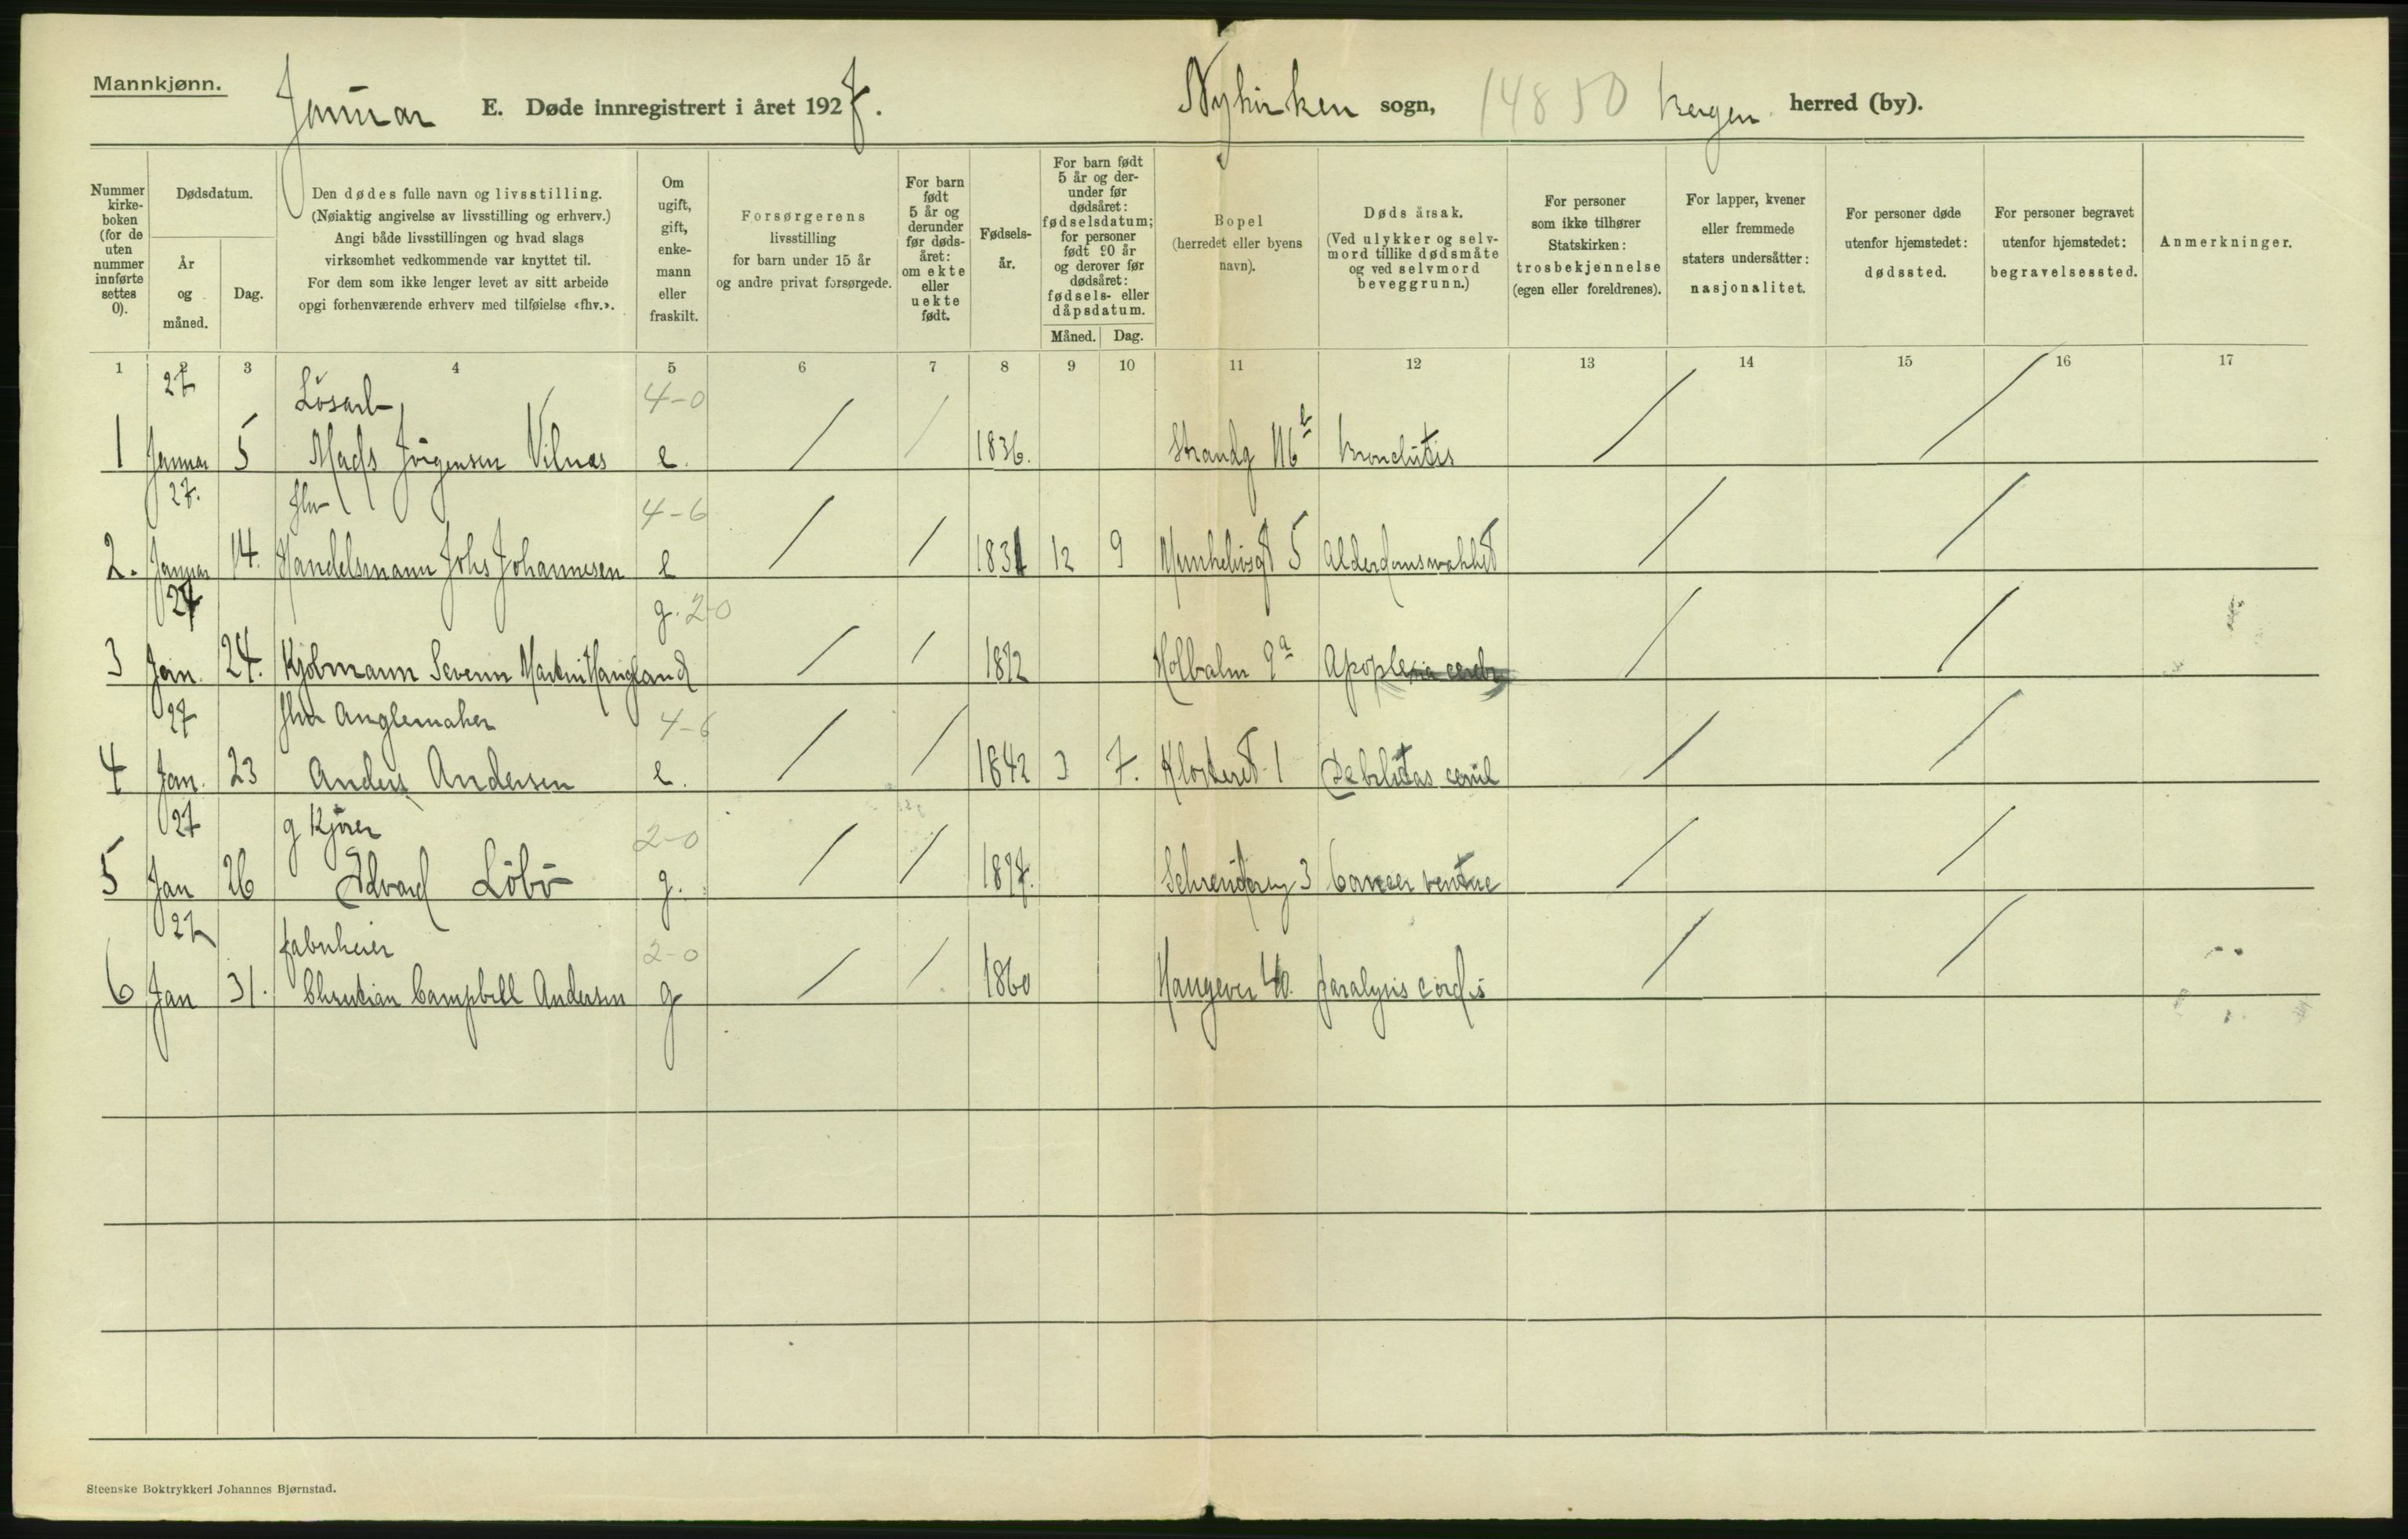 Mannkjønn.
Januar E. Døde innregistrert i året 1927. Nykirken sogn, 14850 Bergen herred (by).
Nummer kirke-boken (for de uten nummer innførte settes 0).
Dødsdatum.
År og måned.
Dag.
Den dødes fulle navn og livsstilling.
(Nøiaktig angivelse av livsstilling og erhverv.)
Angi både livsstillingen og hvad slags
virksomhet vedkommende var knyttet til.
For dem som ikke lenger levet av sitt arbeide
opgi forhenværende erhverv med tilføielse «fhv.».
Om ugift, gift, enke-mann eller fraskilt.
Forsørgerens
livsstilling
for barn under 15 år
og andre privat forsørgede.
For barn født 5 år og derunder før døds-året: om ekte eller uekte født.
Fødsels-år.
For barn født 5 år og der-under før dødsåret: fødselsdatum; for personer født 90 år og derover før dødsåret: fødsels- eller dåpsdatum.
Måned. Dag.
Bopel
(herredet eller byens
navn).
Døds årsak.
(Ved ulykker og selv-
mord tillike dødsmåte
og ved selvmord
beveggrunn.)
For personer
som ikke tilhører
Statskirken:
trosbekjennelse
(egen eller foreldrenes).
For lapper, kvener
eller fremmede
staters undersåtter:
nasjonalitet.
For personer døde
utenfor hjemstedet:
dødssted.
For personer begravet
utenfor hjemstedet:
begravelsessted.
Anmerkninger.
1 2 3 4 5 6 7 8 9 10 11 12 13 14 15 16 17
27 Løsarb 4-0
1 Januar 5 Mads Jørgensen Vilnæs e. / / 1836. Strandg 116 b Bronchitis / /
27. fhv 4-6
2. Januar 14. Handelsmann Johs Johannesen e / / 1831 12 9 Munkelivsgt 5 Alderdomsvakhet / /
27 g. 2-0
3 Jan. 24. Kjøbmann Severin Martin Haugland / / 1872 Holbalm 9a Apoplexia cerebr / /
27 fhv Anglemaker 4-6
4 Jan. 23 Anders Andersen e. / / 1842 3 7. Klosteret 1 Debilitas cenil / /
27 g Kjører 2-0
5 Jan 26 Edvard Løbø g. / / 1877. 3 Cancer ventric / /
27 fabrikeier 2-0
6 Jan 31. Christian Campbell Andersen g / / 1860 Haugevei 40. paralysis cordis / /
Steenske Boktrykkeri Johannes Bjørnstad.